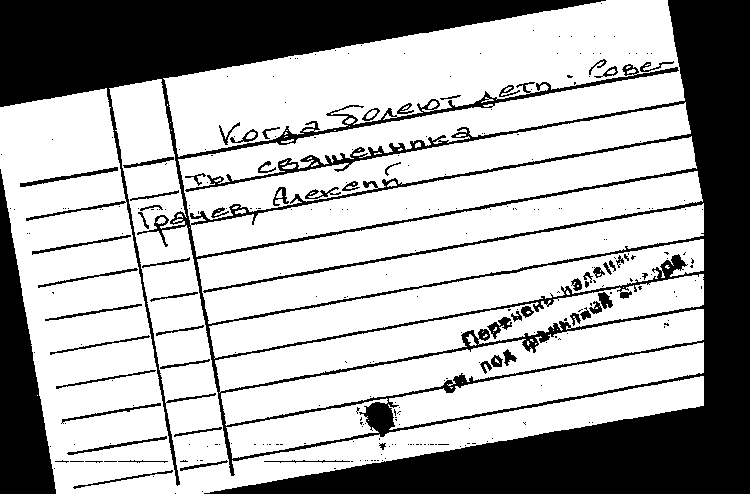 Когда болеют дети : Сове-
ты священника
Грачев, Алексей
Перечень изданий
см. под фамилией автора